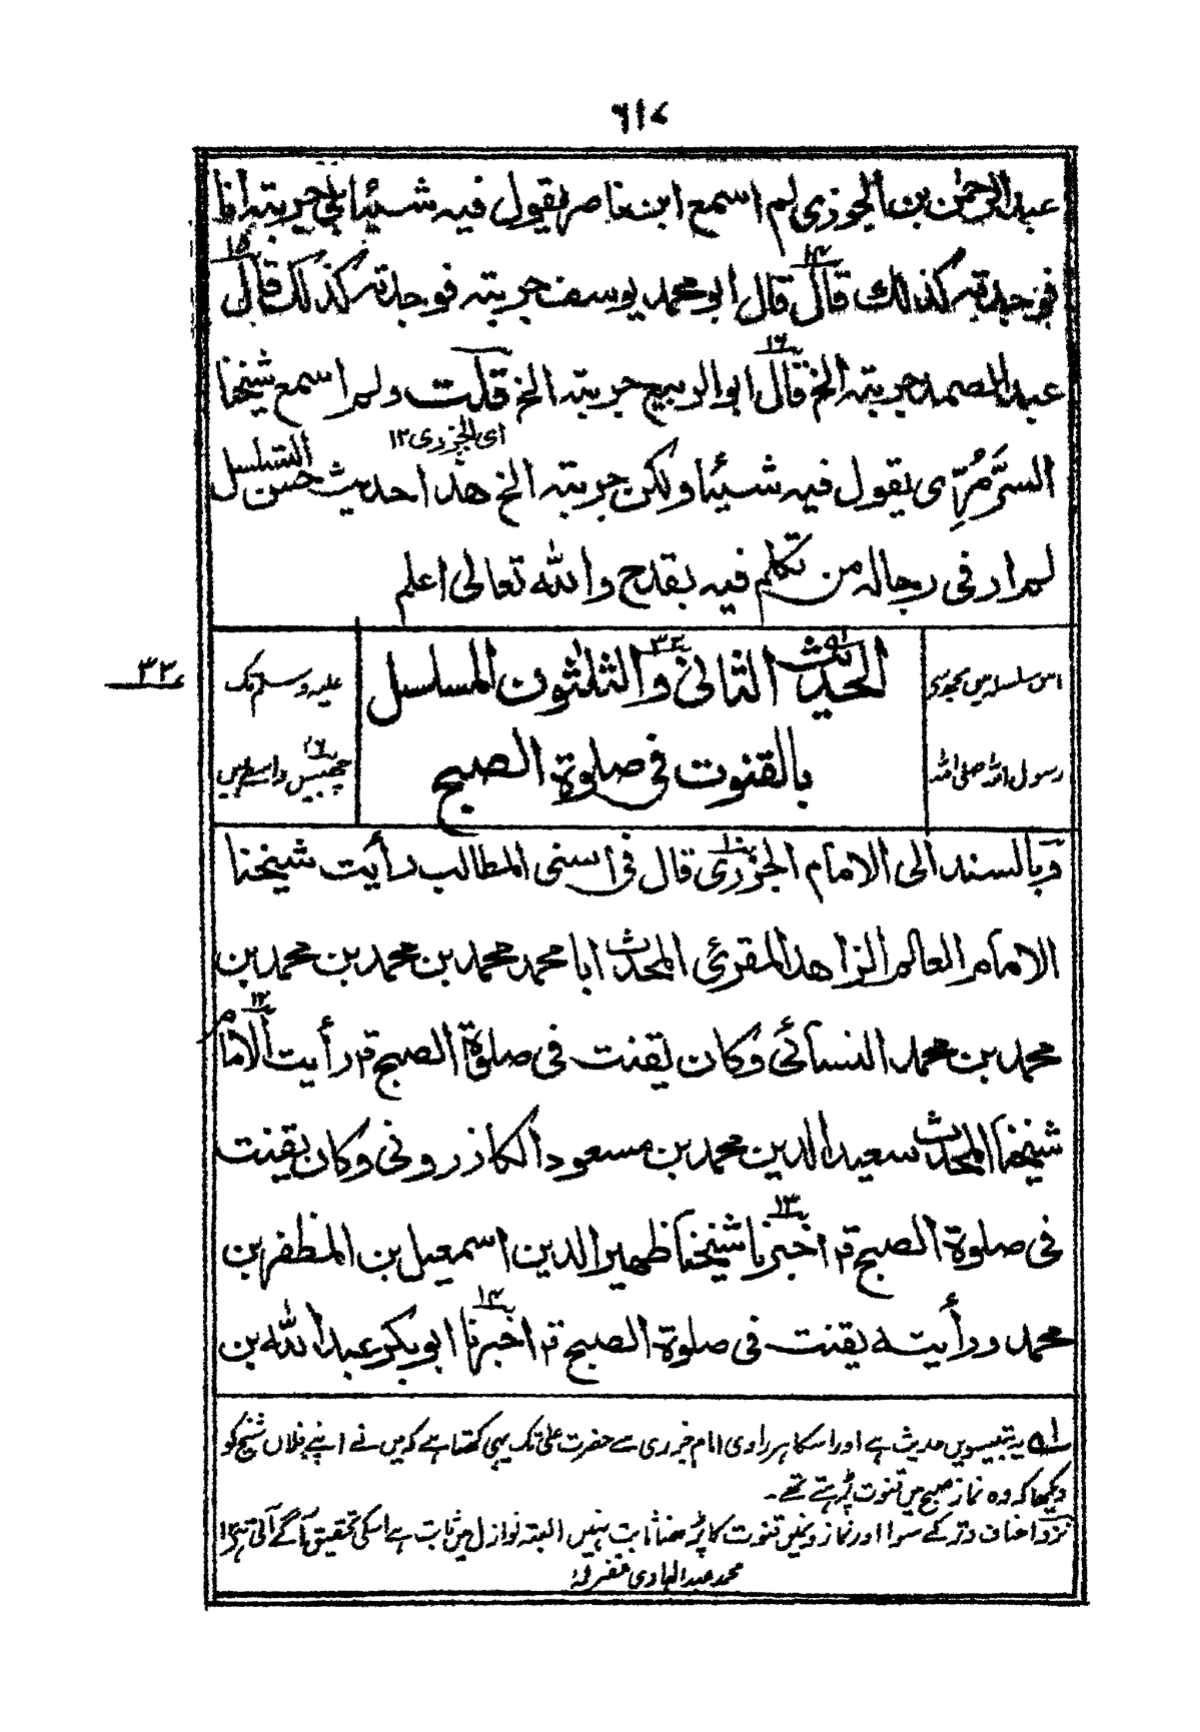 ۶۱۷
عبدالرحمٰن بن الجوزی لم اسمع ابن ناصر یقول فیه شیئا بل جربته انا
فوجدته کذلك قال قال ابو محمد یوسف جربته فوجدته کذلك قال
۱۴ ۱۵
عبدالصمد جربته الخ قال ابو الربیع جربته الخ قلت ولم اسمع شیخنا
۱۶
السرّمرّی یقول فیه شیئا ولکن جربته الخ هذا حدیث حسن التسلسل
ای الجزری ۱۲
لم ار فی رجاله من تکلم فیه بقدح والله تعالی اعلم
اس سلسلہ میں مجھ سے رسول اللہ صلی اللہ
الحدیث الثانی والثلثون المسلسل
۳۲
بالقنوت فی صلوة الصبح
علیہ وسلم تک
چھبیس واسطے ہیں
۲۶
۳۲
وبالسند الی الامام الجزری قال فی اسنی المطالب رأیت شیخنا
۱۰
الامام العالم الزاهد المقرئ المحدث ابا محمد محمد بن محمد بن محمد بن
محمد بن محمد النسائی وکان یقنت فی صلوة الصبح قہ رأیت الامام
۱۲
شیخنا المحدث سعید الدین محمد بن مسعود الکازرونی وکان یقنت
فی صلوة الصبح قہ اخبرنا شیخنا ظهیر الدین اسمعیل بن المظفر بن
۱۳
محمد ورأیته یقنت فی صلوة الصبح قہ اخبرنا ابو بکر عبد الله بن
۱۴
۱؎ یہ بتیسویں حدیث ہے اور اسکا ہر راوی امام جزری سے حضرت علی تک یہی کہتا ہے کہ میں نے اپنے فلاں شیخ کو
دیکھا کہ وہ نماز صبح میں قنوت پڑہتے تھے۔
نزد احناف وتر کے سوا اور نماز میں قنوت کا پڑہنا ثابت نہیں البتہ نوازل میں ثابت ہے اسکی تحقیق آگے آتی ہے ۱۲
محمد عبدالہادی غفرلہ